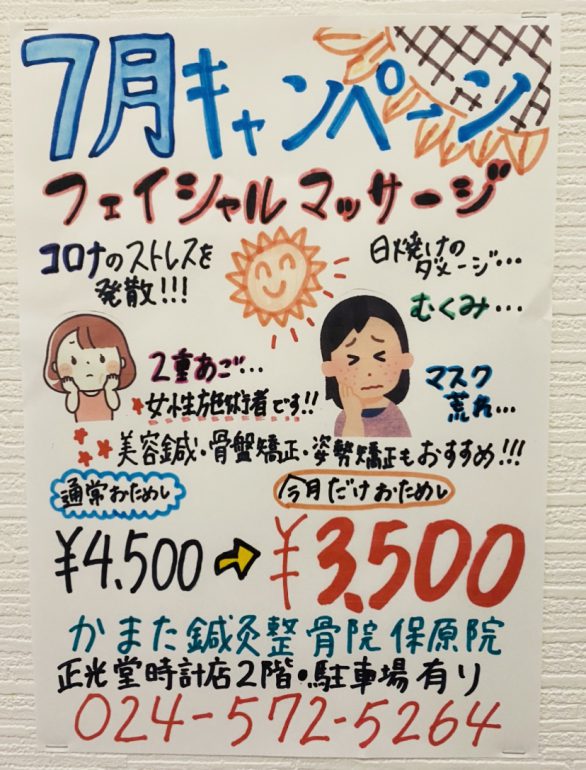 7月キャンペーン
フェイシャルマッサージ
コロナのストレスを
発散!!!
日焼けの
ダメージ…
むくみ…
2重あご…
マスク
荒れ…
女性施術者です!!
美容鍼・骨盤矯正・姿勢矯正もおすすめ!!!
通常おためし
今月だけおためし
¥4.500
¥3.500
かまた鍼灸整骨院 保原院
正光堂時計店2階・駐車場有り
024-572-5264